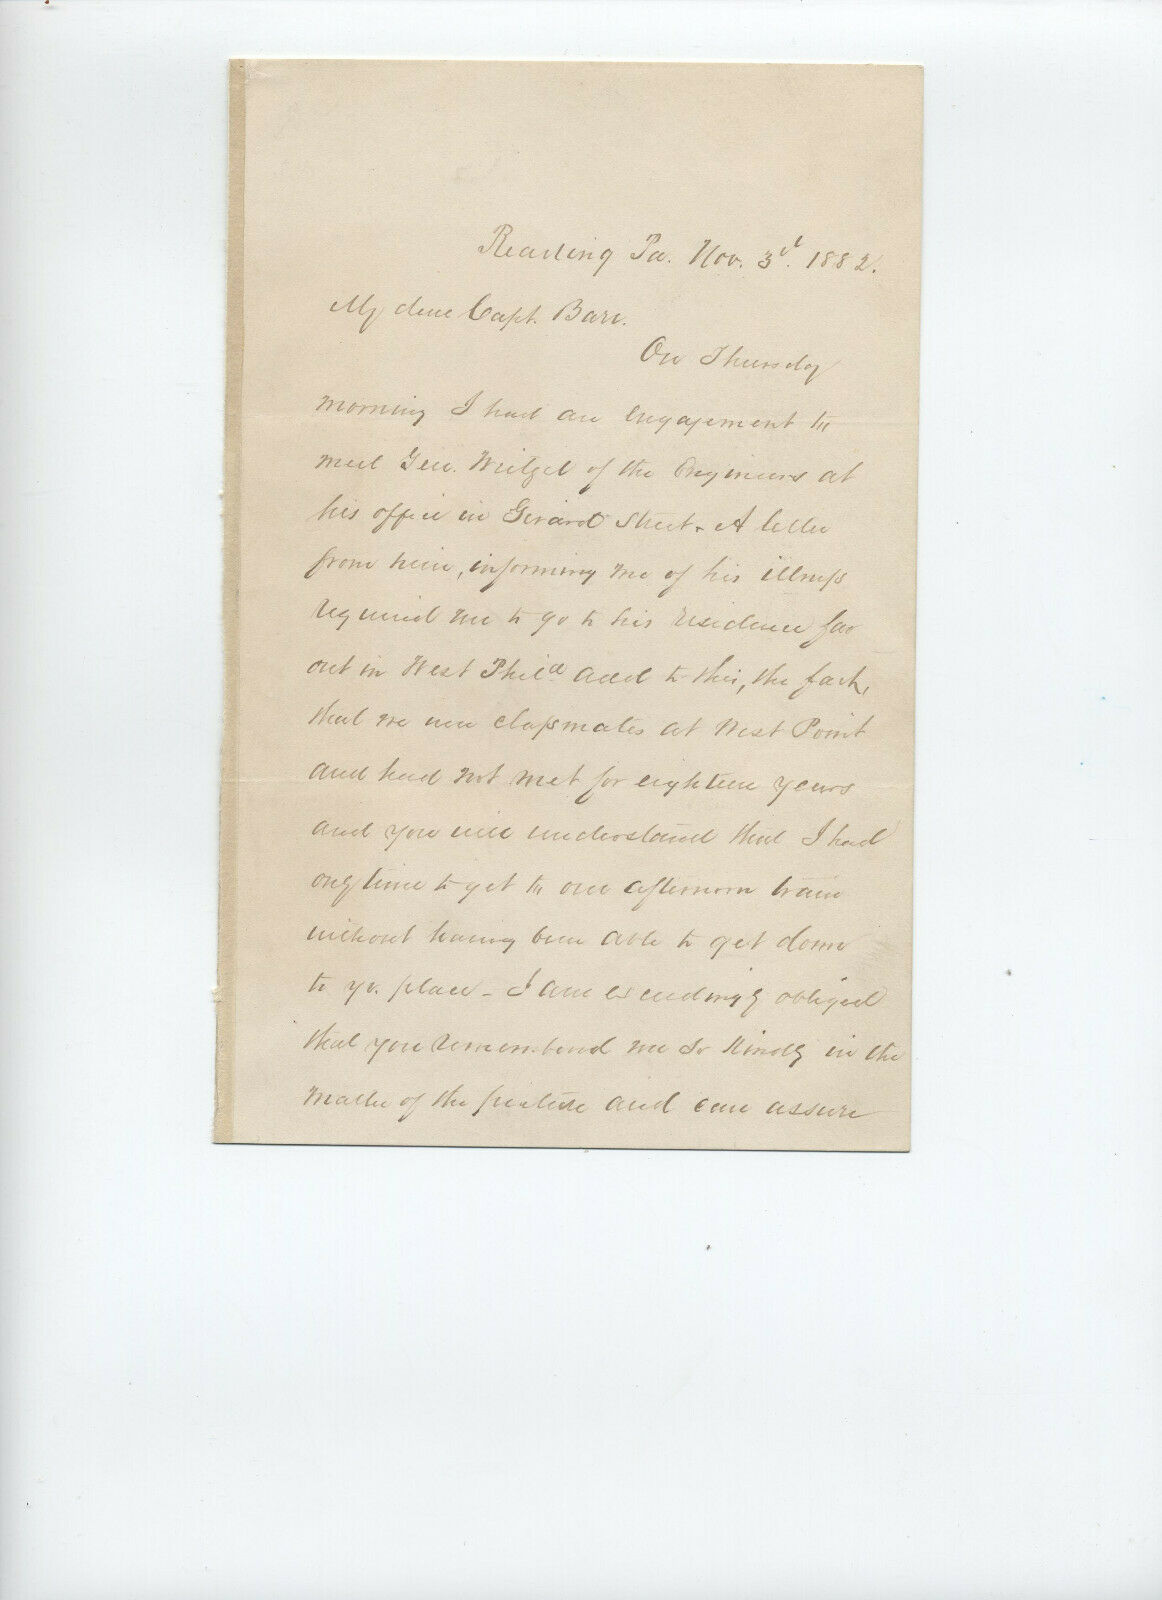 Reading Pa. Nov. 3d. 1882.
My dear Capt. Barr.
On Thursday
morning I had an engagement to
meet Gen. Weitzel of the Engineers at
his office in Girard Street. A letter
from him, informing me of his illness
required me to go to his residence far
out in West Phila add to this, the fact,
that we were classmates at West Point
and had not met for eighteen years
and you will understand that I had
only time to get to our afternoon train
without having been able to get down
to yr. place - I am exceedingly obliged
that you remembered me so kindly in the
matter of the picture and can assure